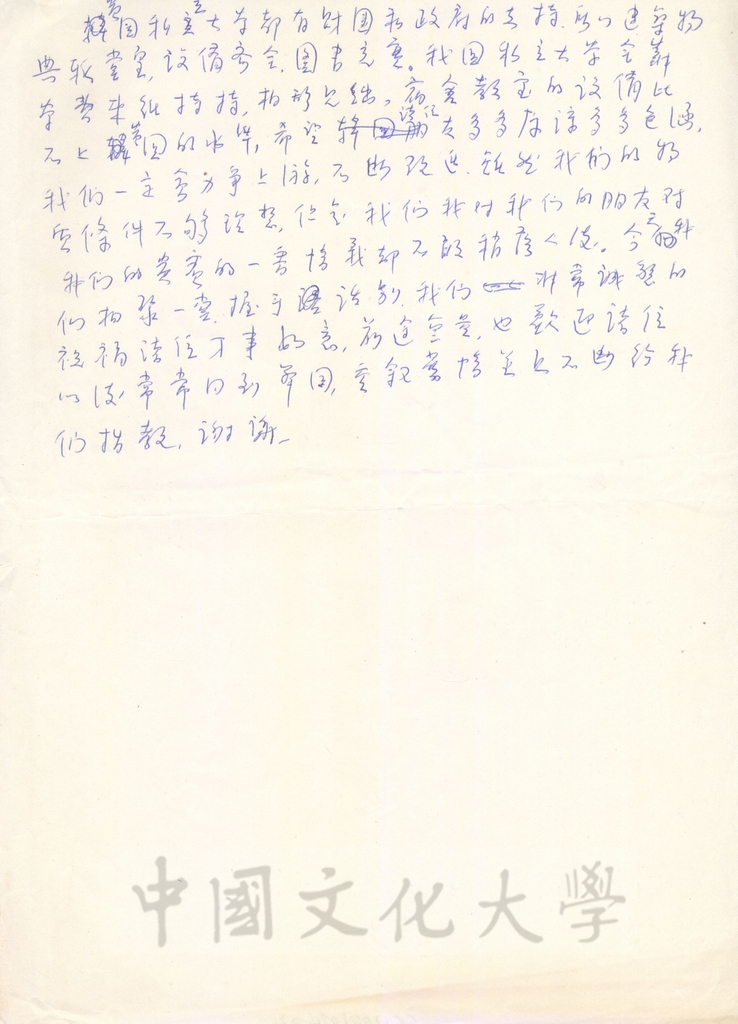 貴國私立大學都有財團和政府的支持,所以建築物
典雅堂皇,設備齊全,圖書充實。我國私立大學全靠
學費來維持,相形見絀。宿舍教室的設備比
不上貴國的水準,希望諸位朋友多多原諒多多包涵,
我們一定會力爭上游,不斷改進。雖然我們的物
質條件不夠理想,但是我們對我們的朋友對
我們的貴賓的一番情義却不敢稍落人後。今天我
們相聚一堂,握手話別,我們非常誠懇的
祝福諸位萬事如意,前途無量,也歡迎諸位
以後常常回到華岡,重敘舊情並且不斷給我
們指教,謝謝。
中國文化大學